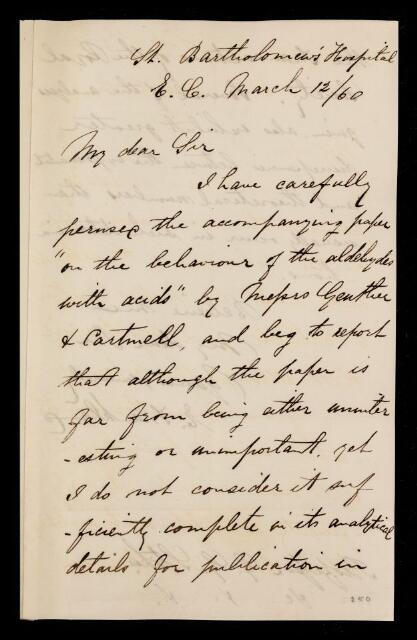 St. Bartholomew's Hospital
E. C. March 12/60
My dear Sir
I have carefully
perused the accompanying paper
"on the behaviour of the aldehydes
with acids" by Messrs Geuther
& Cartmell, and beg to report
that although the paper is
far from being either uninter
-esting or unimportant, yet
I do not consider it suf
-ficiently complete in its analytical
details for publication in
250